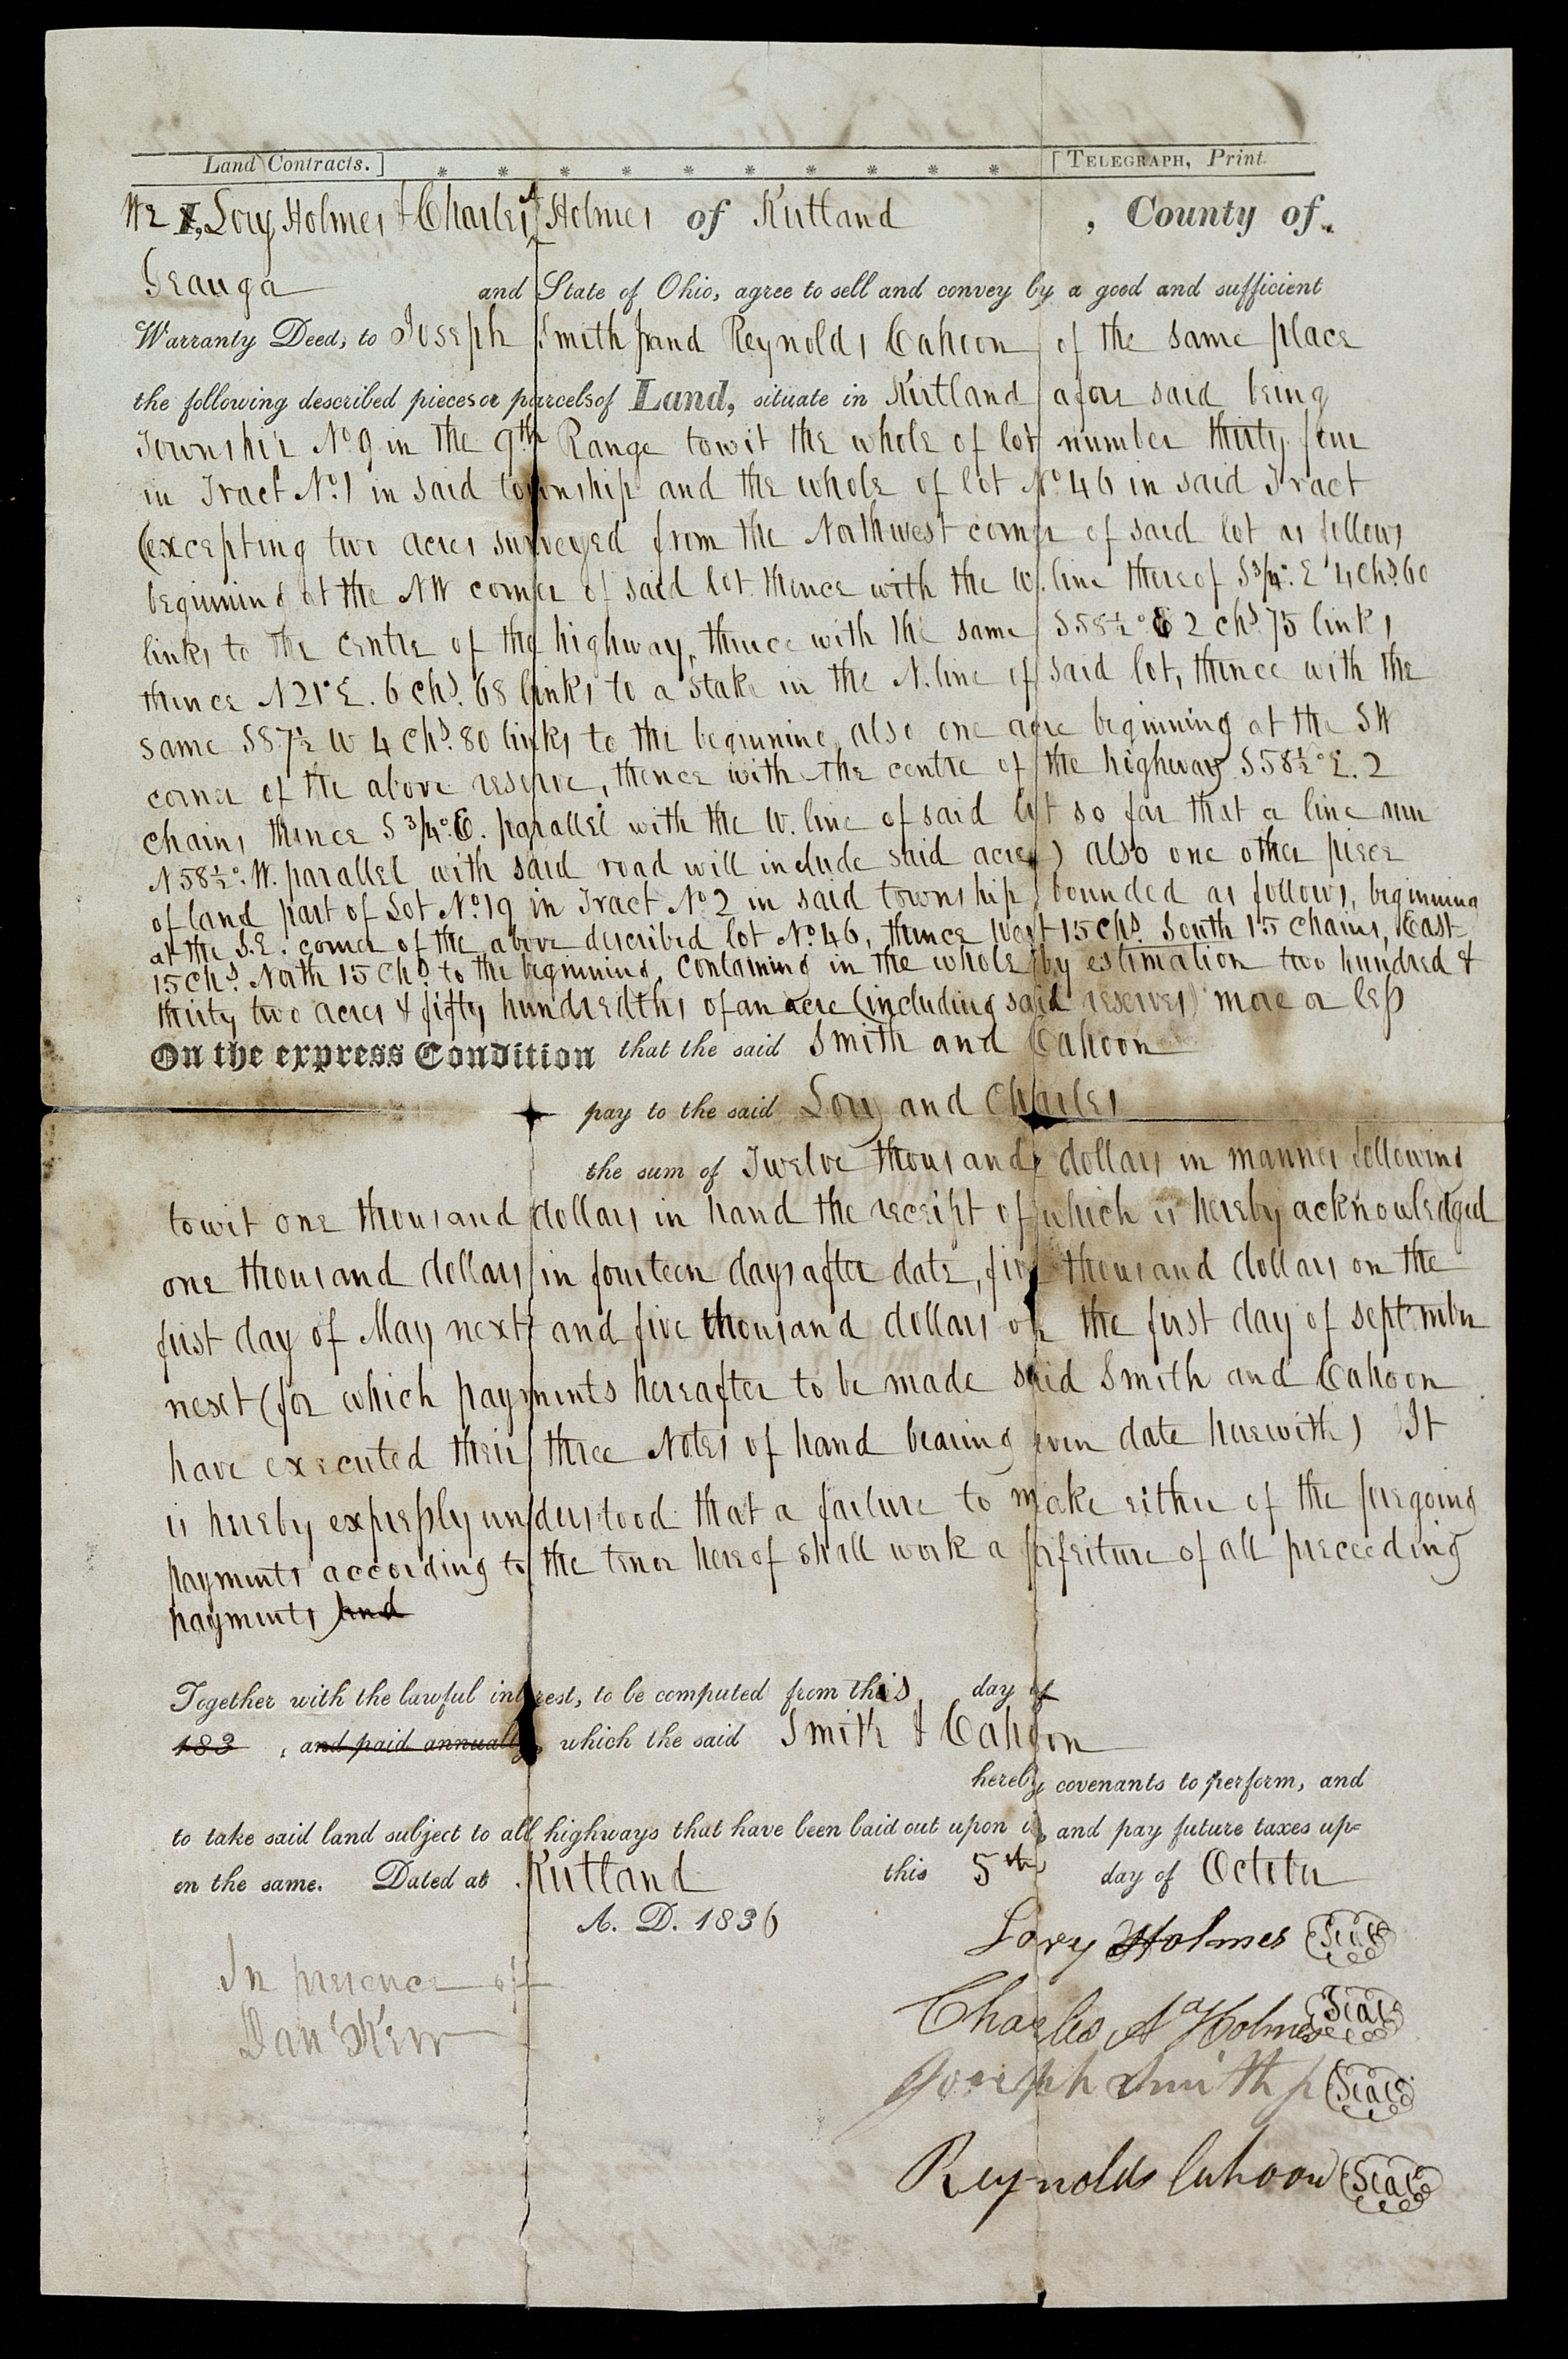 Land Contracts.] * * * * * * * * * * [TELEGRAPH, Print.
We I, Lory Holmes & Charles A Holmes of Kirtland , County of
Geauga and State of Ohio, agree to sell and convey by a good and sufficient
Warranty Deed, to Joseph Smith Jr and Reynolds Cahoon of the same place
the following described pieces or parcels of Land, situate in Kirtland afore said being
Township No. 9 in the 9th Range towit the whole of lot number thirty four
in Tract No. 1 in said township and the whole of lot No. 46 in said Tract
(excepting two acres surveyed from the Northwest corner of said lot as follows
beginning at the NW corner of said lot thence with the W. line thereof S 3/4°. E 4 chs. 60
links to the centre of the highway, thence with the same S 58½° E 2 chs. 75 links,
thence N 21° E. 6 chs. 68 links to a stake in the N. line of said lot, thence with the
same S 87½ W 4 chs. 80 links to the beginning, also one acre beginning at the SW
corner of the above reserve, thence with the centre of the highway S 58½° E. 2
chains thence S 3/4°. E. parallel with the W. line of said lot so far that a line run
N 58½°. W. parallel with said road will include said acre) also one other piece
of land part of Lot No. 19 in Tract No. 2 in said township bounded as follows, beginning
at the S.E. corner of the above described lot No. 46, thence West 15 chs. South 15 chains, East
15 chs. North 15 chs. to the beginning, containing in the whole by estimation two hundred &
thirty two acres & fifty hundredths of an acre (including said reserves) more or less
On the express Condition that the said Smith and Cahoon
pay to the said Lory and Charles
the sum of Twelve thousand dollars in manner following
towit one thousand dollars in hand the receipt of which is hereby acknowledged
one thousand dollars in fourteen days after date, five thousand dollars on the
first day of May next and five thousand dollars on the first day of September
next (for which payments hereafter to be made said Smith and Cahoon
have executed their three Notes of hand bearing even date herewith) It
is hereby expressly understood that a failure to make either of the foregoing
payments according to the tenor hereof shall work a forfeiture of all preceeding
payments and
Together with the lawful interest, to be computed from this day of
183 , and paid annually, which the said Smith & Cahoon
hereby covenants to perform, and
to take said land subject to all highways that have been laid out upon it, and pay future taxes up-
on the same. Dated at Kirtland this 5th day of October
A. D. 1836
Lory Holmes Seal
In presence of
Charles A Holmes Seal
Dan Kerr
Joseph Smith Jr Seal
Reynolds Cahoon Seal